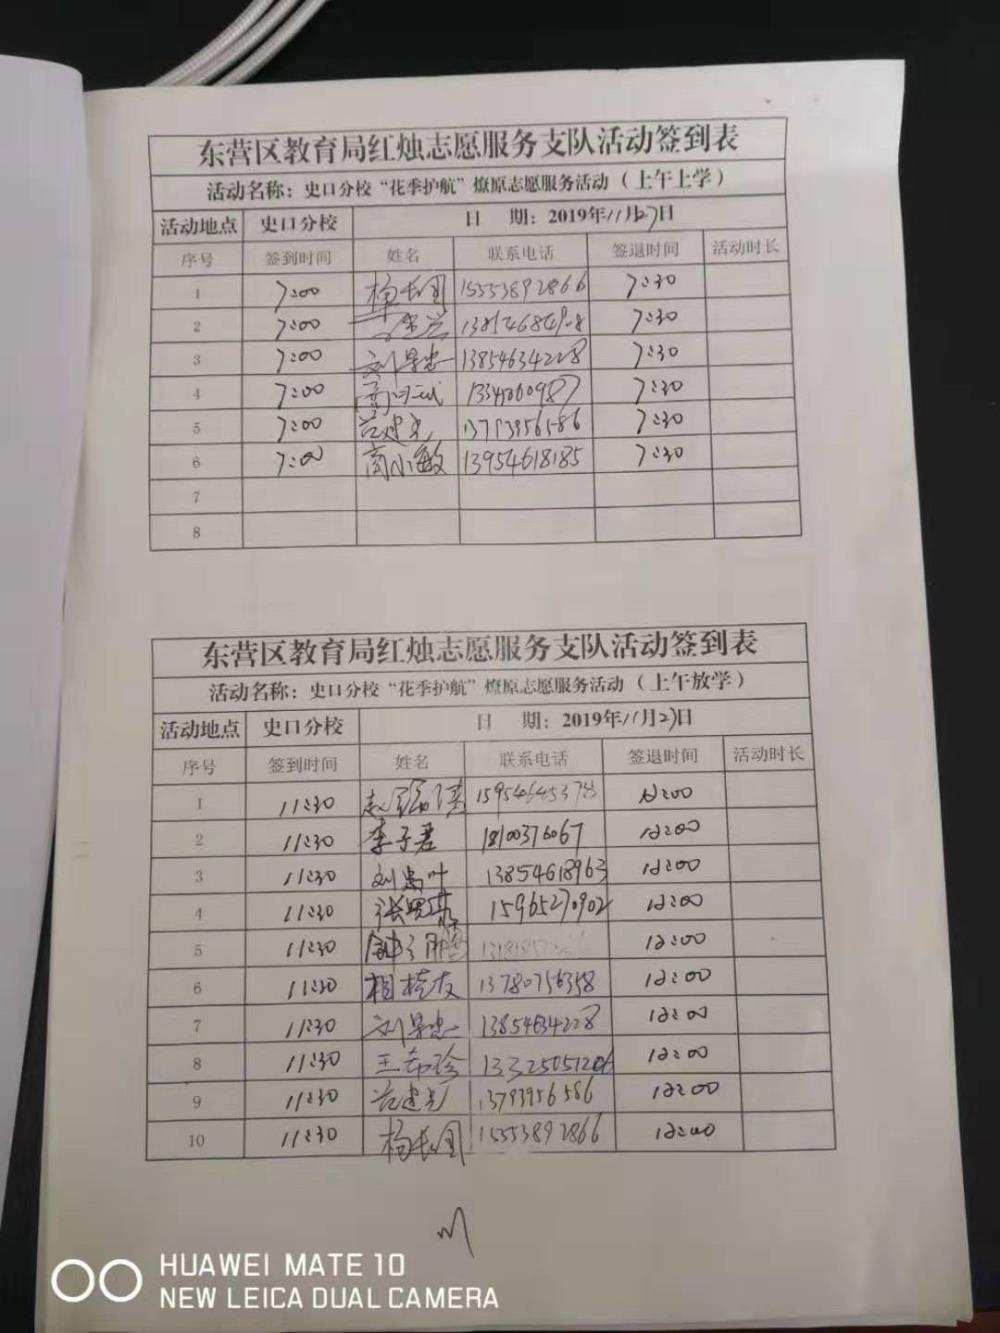 东营区教育局红烛志愿服务支队活动签到表
活动名称：史口分校“花季护航”燎原志愿服务活动（上午上学）
活动地点 史口分校 日 期：2019年11月27日
序号 签到时间 姓名 联系电话 签退时间 活动时长
1 7:00 杨长国 15553892866 7:30
2 7:00 7:30
3 7:00 刘景忠 13854634228 7:30
4 7:00 7:30
5 7:00 范建光 13793956586 7:30
6 7:00 商小敏 13954618185 7:30
7
8
东营区教育局红烛志愿服务支队活动签到表
活动名称：史口分校“花季护航”燎原志愿服务活动（上午放学）
活动地点 史口分校 日 期：2019年11月27日
序号 签到时间 姓名 联系电话 签退时间 活动时长
1 11:30 12:00
2 11:30 李子君 12:00
3 11:30 13854618963 12:00
4 11:30 15965270902 12:00
5 11:30 12:00
6 11:30 相桂友 13780756358 12:00
7 11:30 刘景忠 13854634228 12:00
8 11:30 王希珍 13325051206 12:00
9 11:30 范建光 13793956586 12:00
10 11:30 杨长国 15553892866 12:00
HUAWEI MATE 10
NEW LEICA DUAL CAMERA